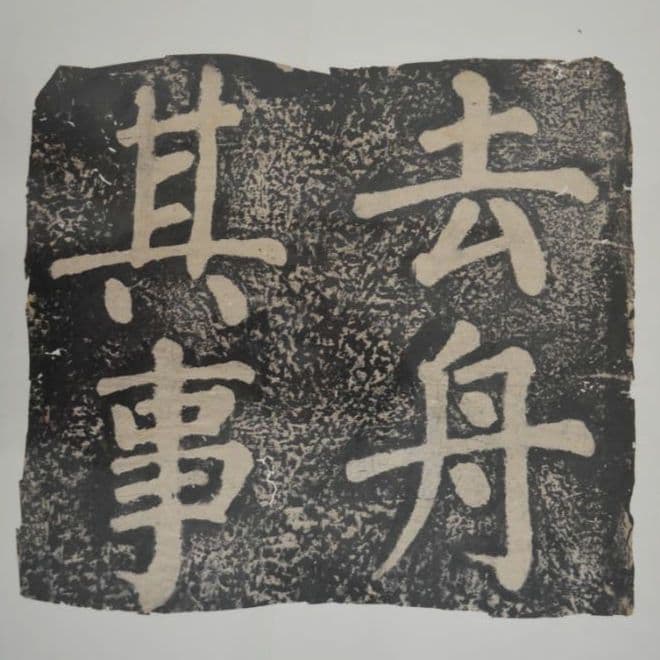 去舟
其事